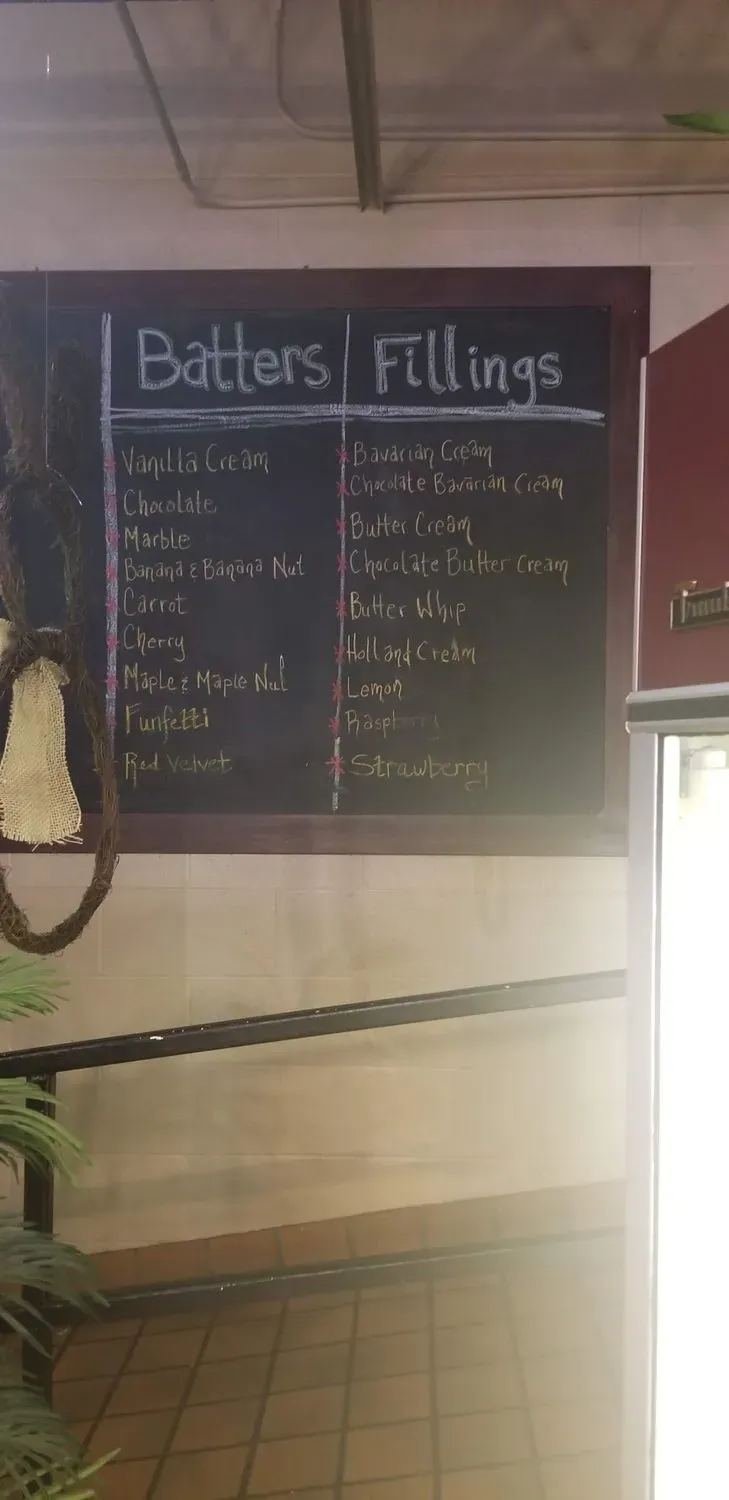 Batters
Vanilla Cream
Chocolate
Marble
Banana & Banana Nut
Carrot
Cherry
Maple & Maple Nut
Funfetti
Red Velvet
Fillings
Bavarian Cream
Chocolate Bavarian Cream
Butter Cream
Chocolate Butter Cream
Butter Whip
Holland Cream
Lemon
Raspberry
Strawberry